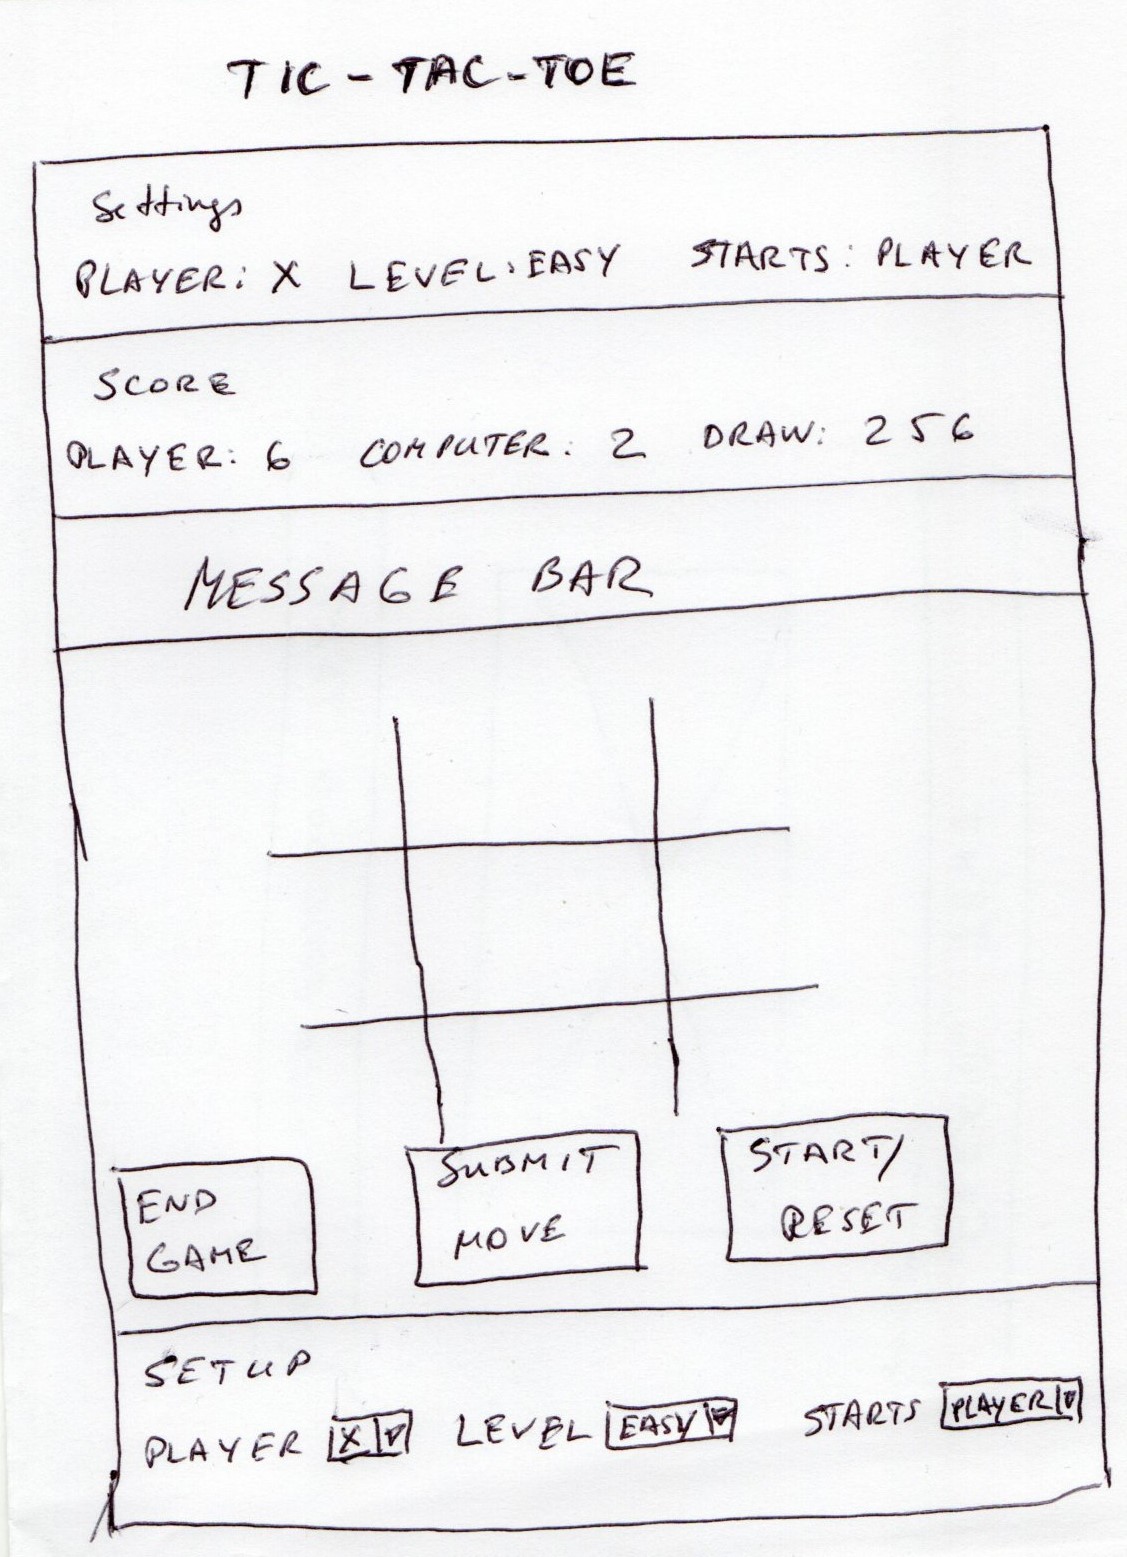 TIC-TAC-TOE
Settings
PLAYER: X LEVEL: EASY STARTS: PLAYER
SCORE
PLAYER: 6 COMPUTER: 2 DRAW: 256
MESSAGE BAR
END
GAME
SUBMIT
MOVE
START/
RESET
SETUP
PLAYER X LEVEL EASY STARTS PLAYER